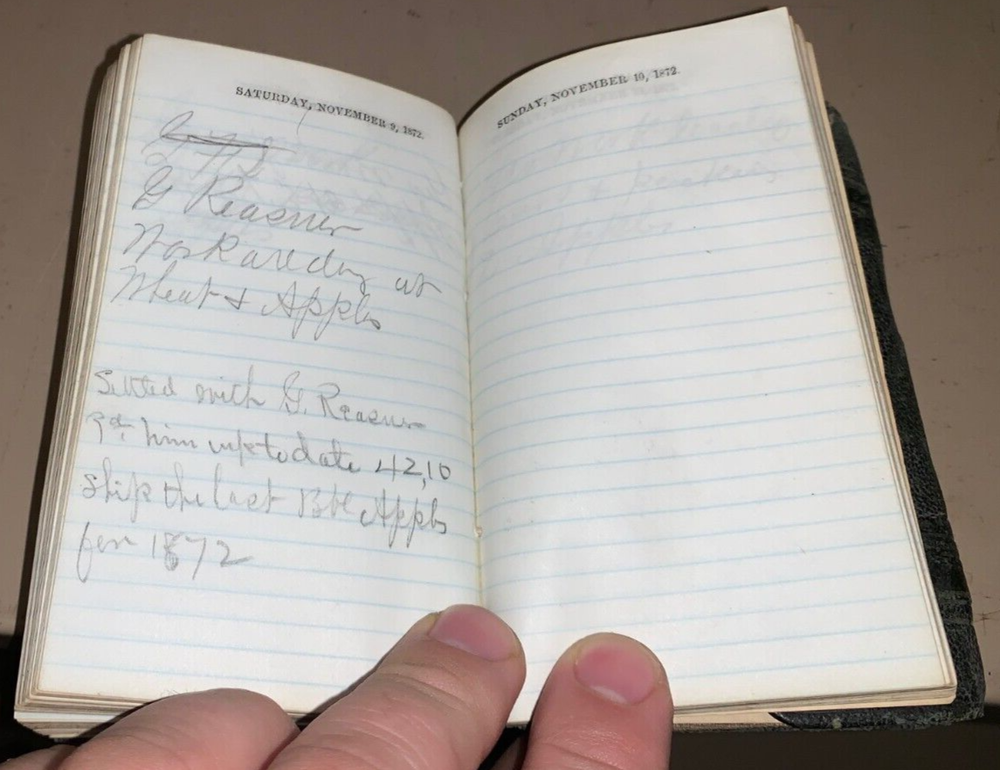 SATURDAY, NOVEMBER 9, 1872.
G Reasner
Work all day at
Wheat & Apples
Settled with G. Reasner
Pd. him up to date 42,10
Ship the last Bbl Apples
for 1872
SUNDAY, NOVEMBER 10, 1872.